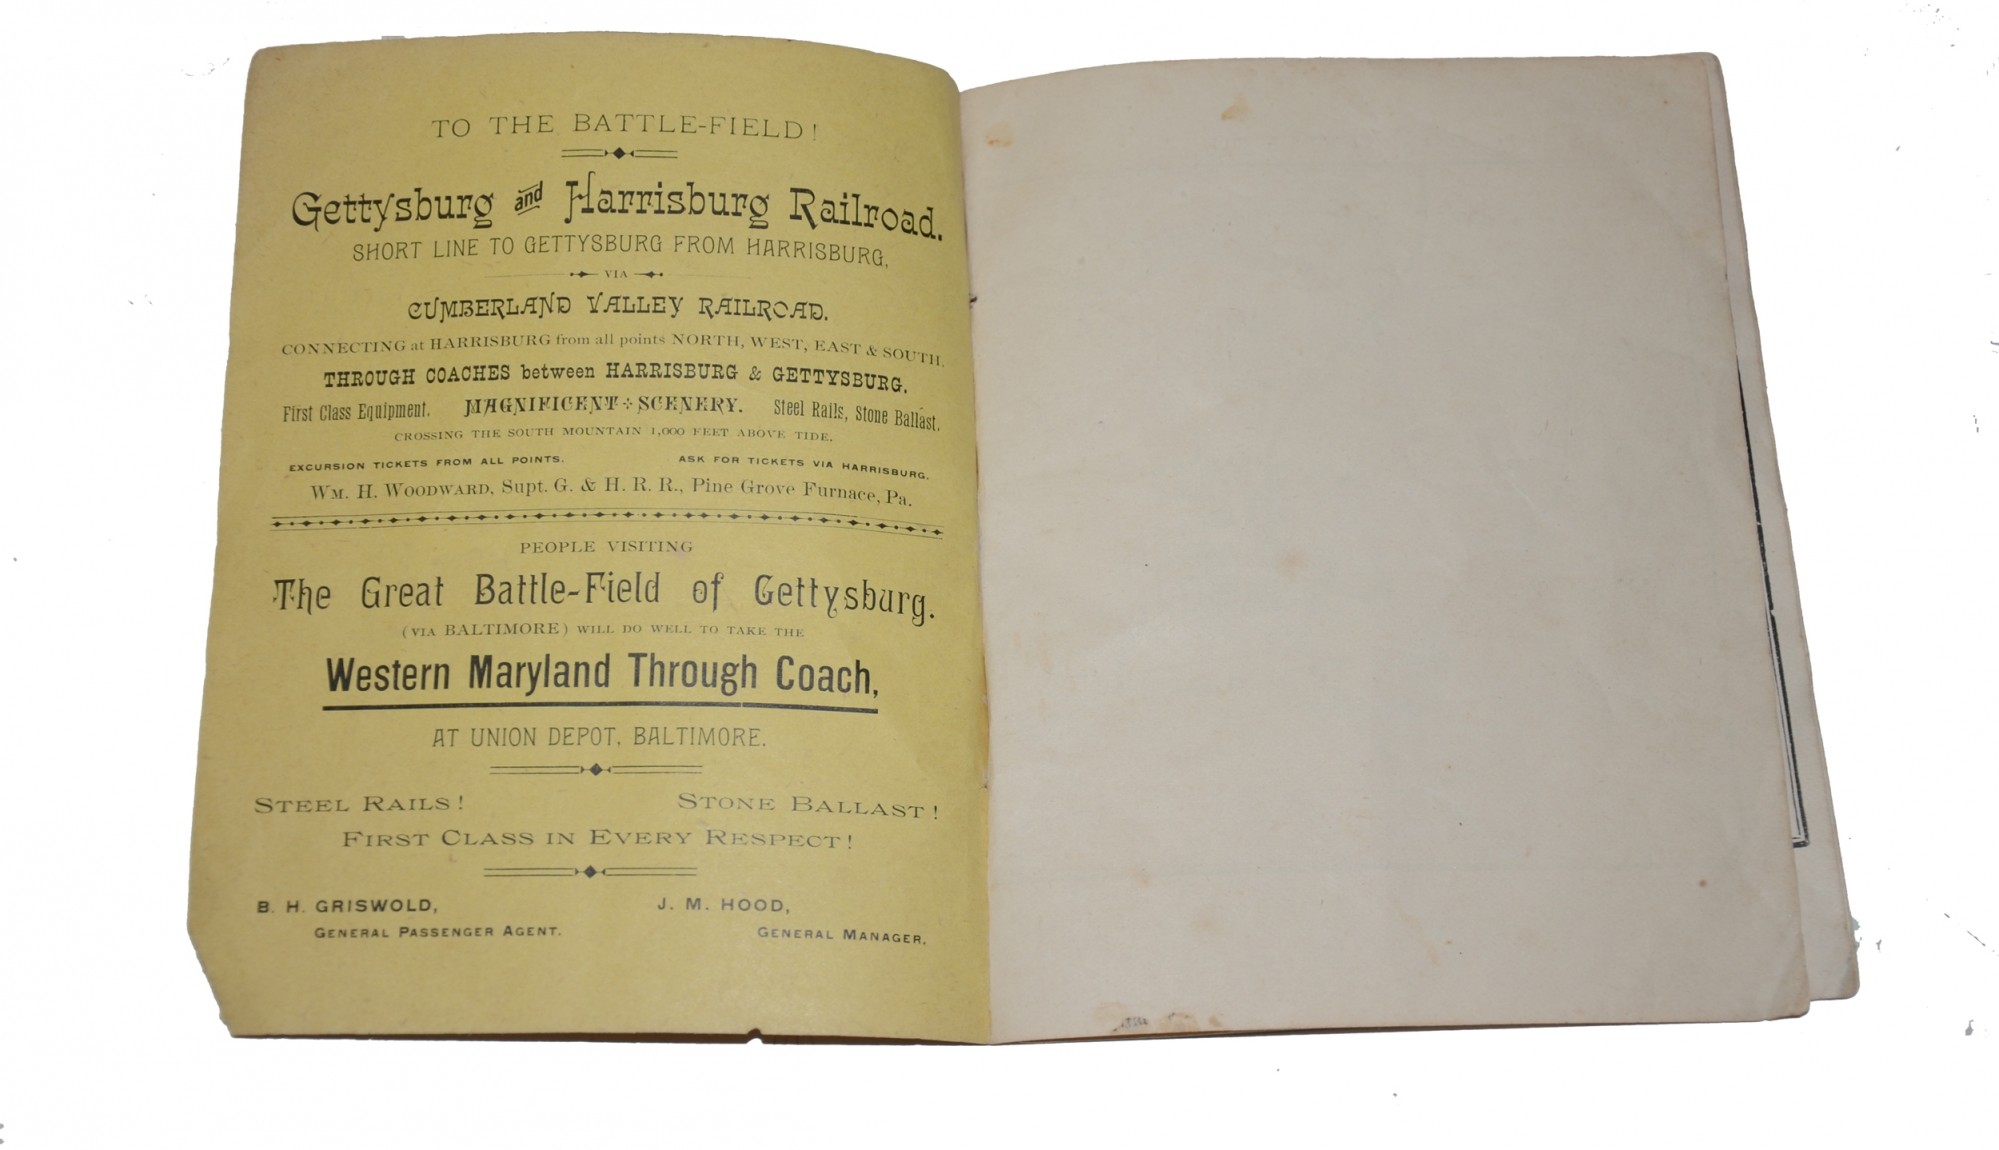 TO THE BATTLE-FIELD!
Gettysburg and Harrisburg Railroad.
SHORT LINE TO GETTYSBURG FROM HARRISBURG,
VIA
CUMBERLAND VALLEY RAILROAD.
CONNECTING at HARRISBURG from all points NORTH, WEST, EAST & SOUTH.
THROUGH COACHES between HARRISBURG & GETTYSBURG.
First Class Equipment. MAGNIFICENT SCENERY. Steel Rails, Stone Ballast.
CROSSING THE SOUTH MOUNTAIN 1,000 FEET ABOVE TIDE.
EXCURSION TICKETS FROM ALL POINTS. ASK FOR TICKETS VIA HARRISBURG.
WM. H. WOODWARD, Supt. G. & H. R. R., Pine Grove Furnace, Pa.
PEOPLE VISITING
The Great Battle-Field of Gettysburg.
(VIA BALTIMORE) WILL DO WELL TO TAKE THE
Western Maryland Through Coach,
AT UNION DEPOT, BALTIMORE.
STEEL RAILS! STONE BALLAST!
FIRST CLASS IN EVERY RESPECT!
B. H. GRISWOLD, J. M. HOOD,
GENERAL PASSENGER AGENT. GENERAL MANAGER.